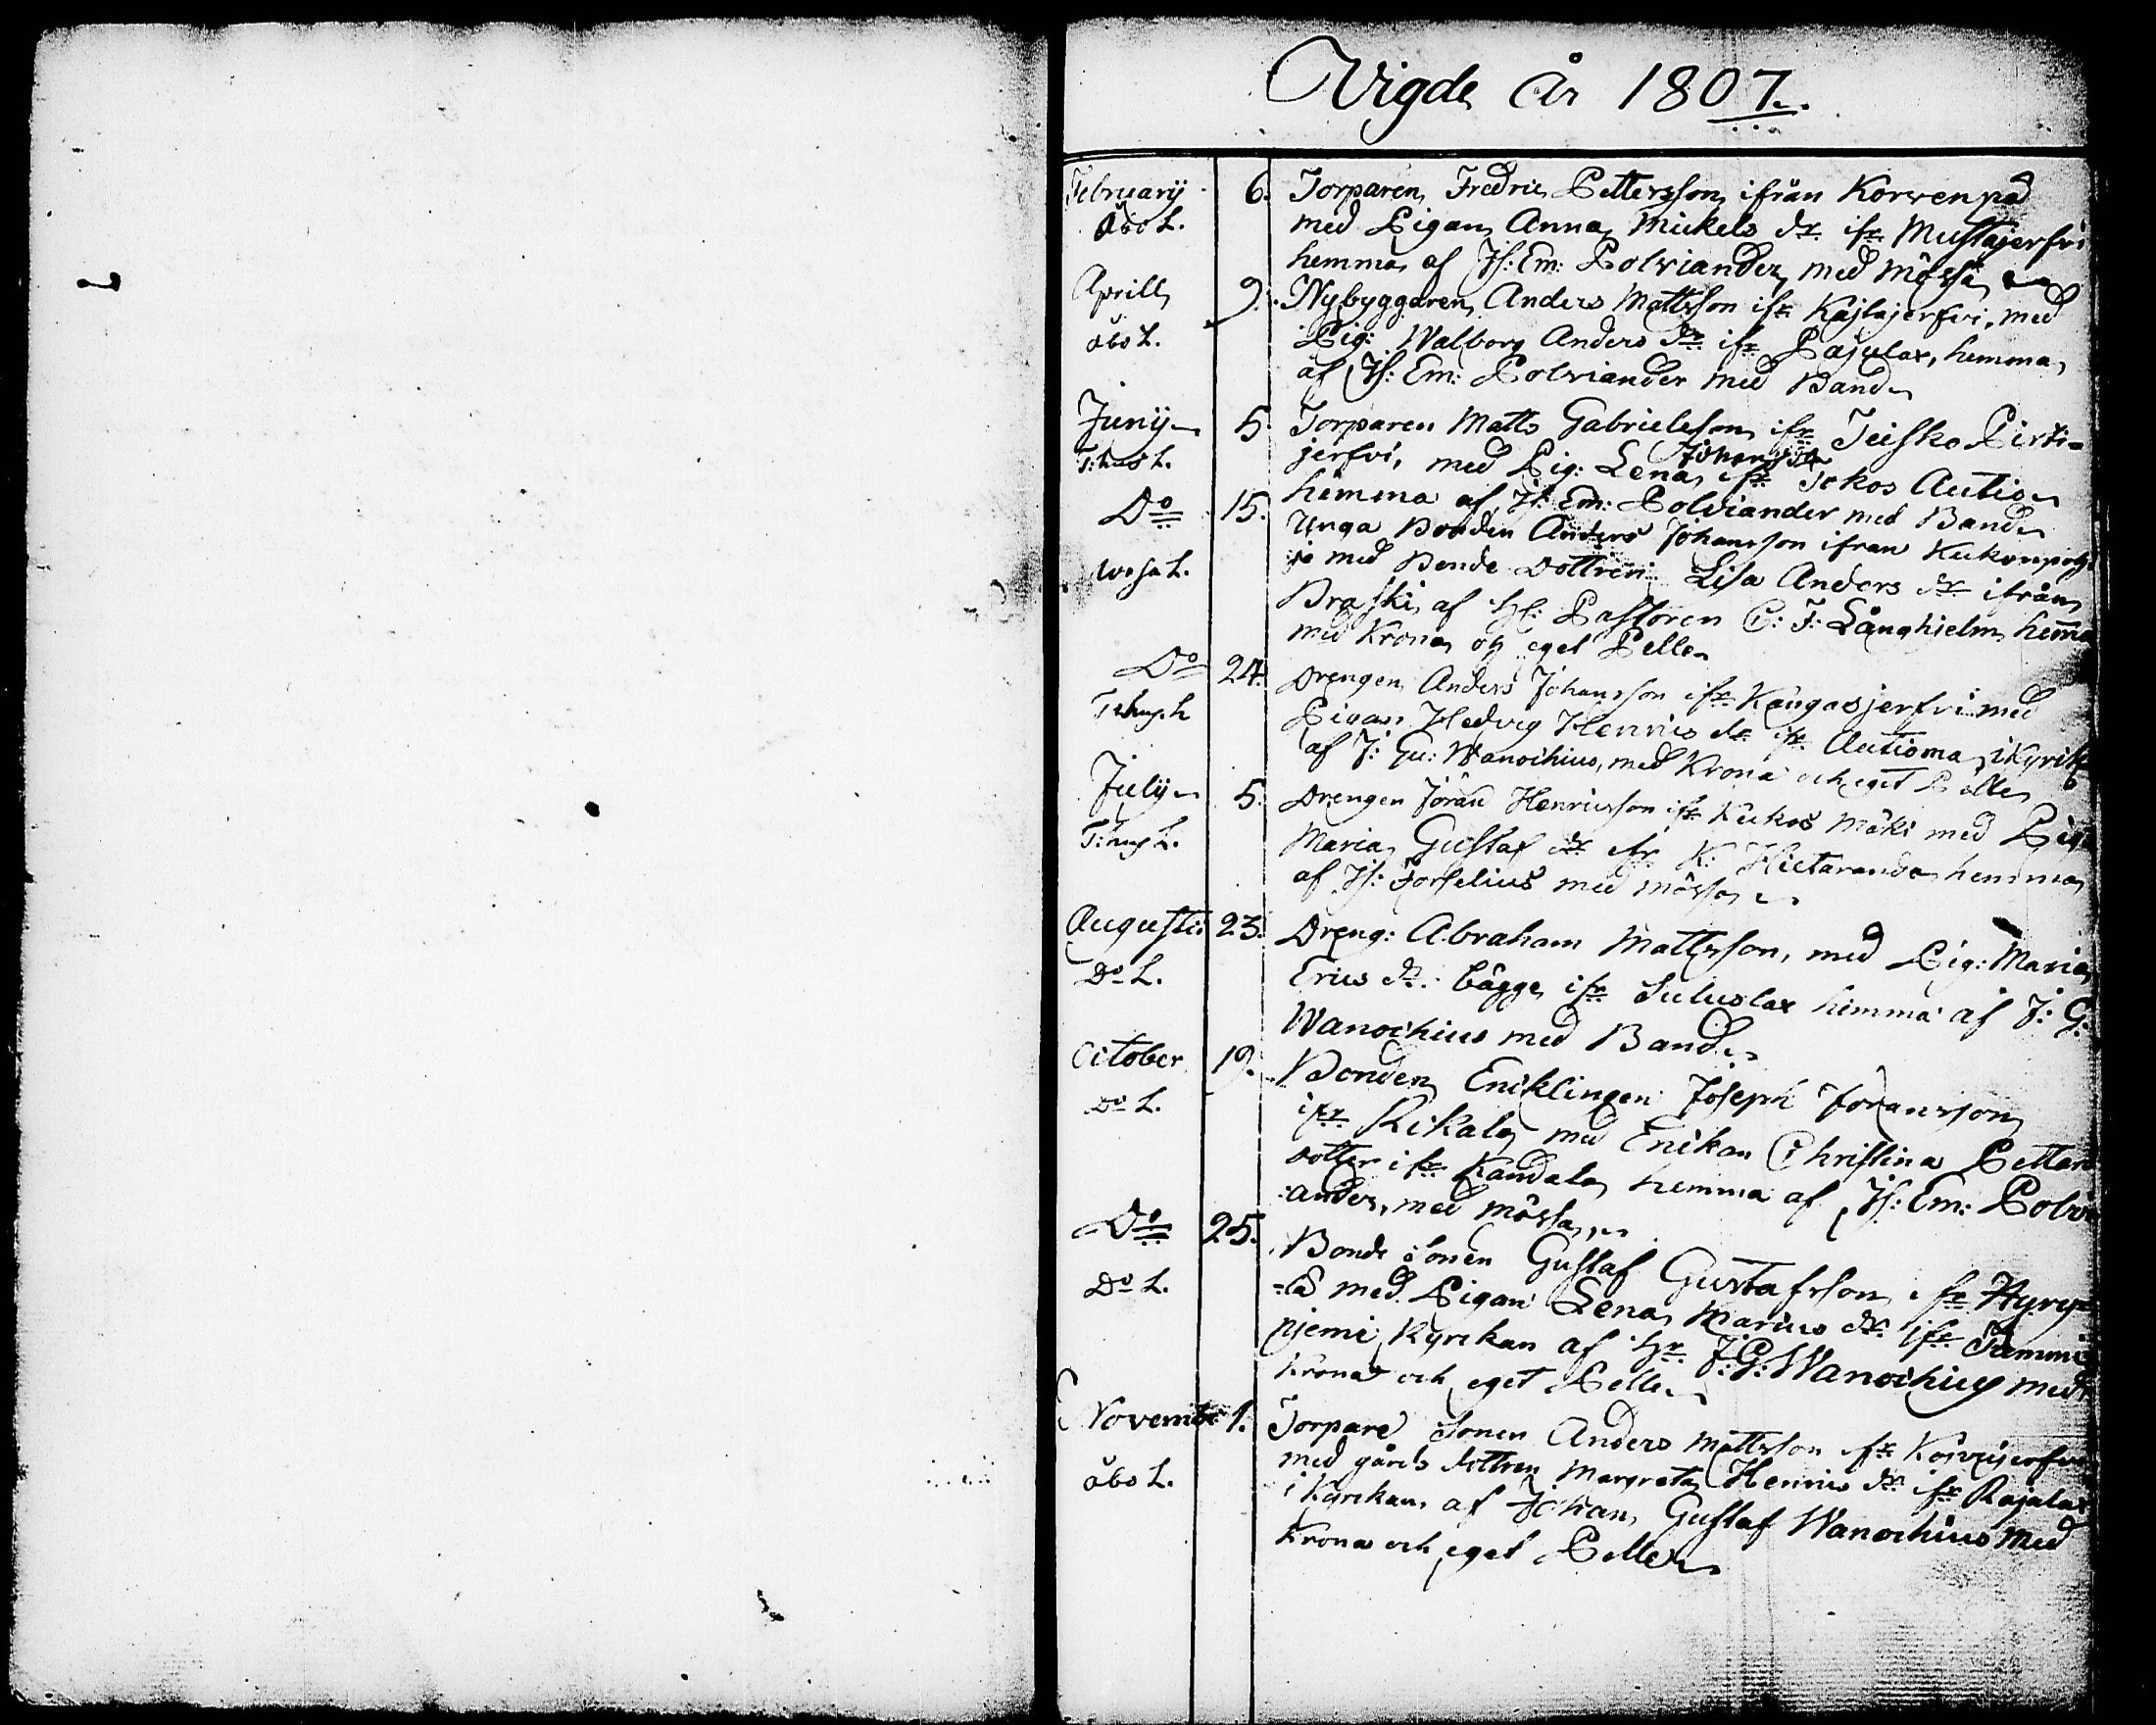 Vigde År 1807.
Februarij 6. Torparen Fredric Pettersson ifrån Korvenpä
Åbo L. med Pigan Anna Mickels dr. ifr. Mustajerfvi
hemma af H: Em: Polviander med Mössa
Aprill 9. Nybyggaren Anders Mattsson ifr. Kajlajerfvi, med
åbo L. Pig: Walborg Anders dr. ifr. Pajulax, hemma
af H: Em: Polviander med Band
Junij 5 Torparen Matts Gabrielsson ifr. Teisko Pirti=
T:hus L. jerfvi, med Pig: Lena Johans dr ifr. Jokos Autio
hemma af H: Em: Polviander med Band
Do 15. Unga Bonden Anders Johansson ifrån Kukonpohj
ja med Bonde Dottren Lisa Anders dr ifrån
Wasa L. Braski, af H: Pastoren C: F: Långhielm hemma
med Krona og eget Pelle
Do 24. Drengen Anders Johansson ifr. Kangasjerfvi med
T:hus. L Pigan Hedvig Henrics dr. ifr. Autioma, i Kyrik
af J: Gu: Wanochius, med Krona och eget Pelle
Julij 5. Drengen Jöran Henricsson ifr. Kukos Mäki med Piga
T:hus L. Maria Gustaf dr ifr K: Hietaranda hemma
af H: Forselius med Mössa
Augusti 23. Dreng: Abraham Mattsson, med Pig: Maria
Do L. Erics dr. bägge ifr. Suluslax hemma af J: G:
Wanochius med Band
October 19. Bonden Encklingen Joseph Joransson
Do L. ifr Rikala med Enckan Christina Petters
dotter ifr. Kandala hemma af H: Em: Polvi
:ander, med mössa
Do 25. Bonde Sonen Gustaf Gustafsson ifr. Hyry=
Do L. =lä med Pigan Lena Marcus dr. ifr. Tammi
njemi Kyrckan af Hr. J: G: Wanochius med
Krona och eget Pelle
November 1. Torpare Sonen Anders Mattsson ifr. Koivujerfvi
åbo L. med gårds dottren Margreta Henrics dr. ifr Rajalax
i Kyrckan af Johan Gustaf Wanochius med
Krona och eget Pelle